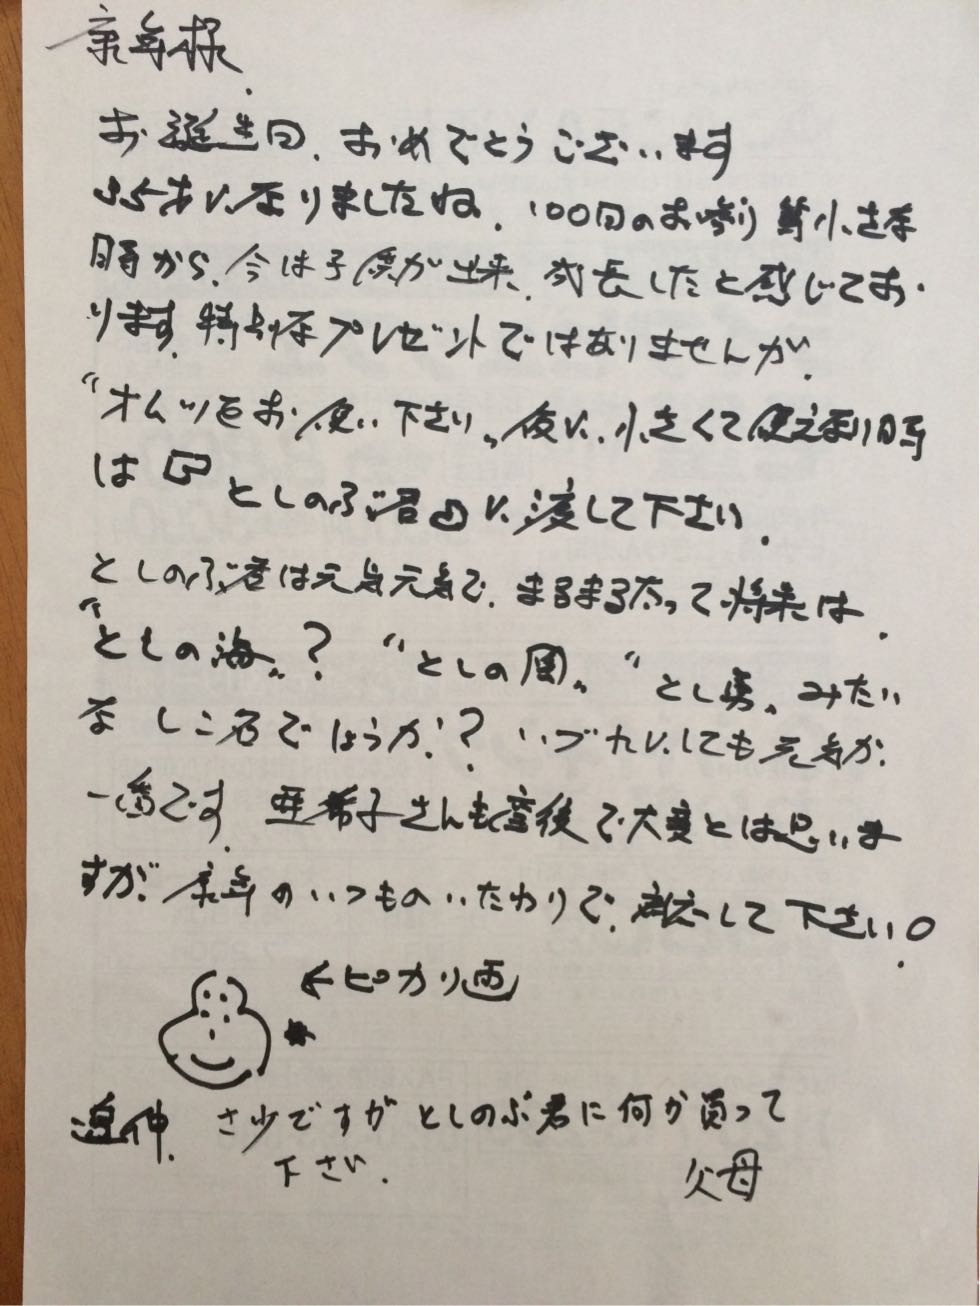 様
お誕生日、おめでとうございます
才に なりましたね、100日のお 小さな
時から、今は子供が出来、成長したと感じてお
ります。特別なプレゼントではありませんが、
"オムツをお使い下さい" 後に、小さくて使え 時
は としのぶ君 に渡して下さい。
としのぶ君は元気元気で、まるまる太って将来は、
"としの海"? "としの国" "とし勇" みたい
な しこ名でしょうか? いづれにしても元気が
一番です。亜希子さんも産後で大変とは思いま
すが、 のいつものいたわりで、 して下さい。
←ピカリ画
追伸、 さ少ですが としのぶ君に何か買って
下さい。 父母